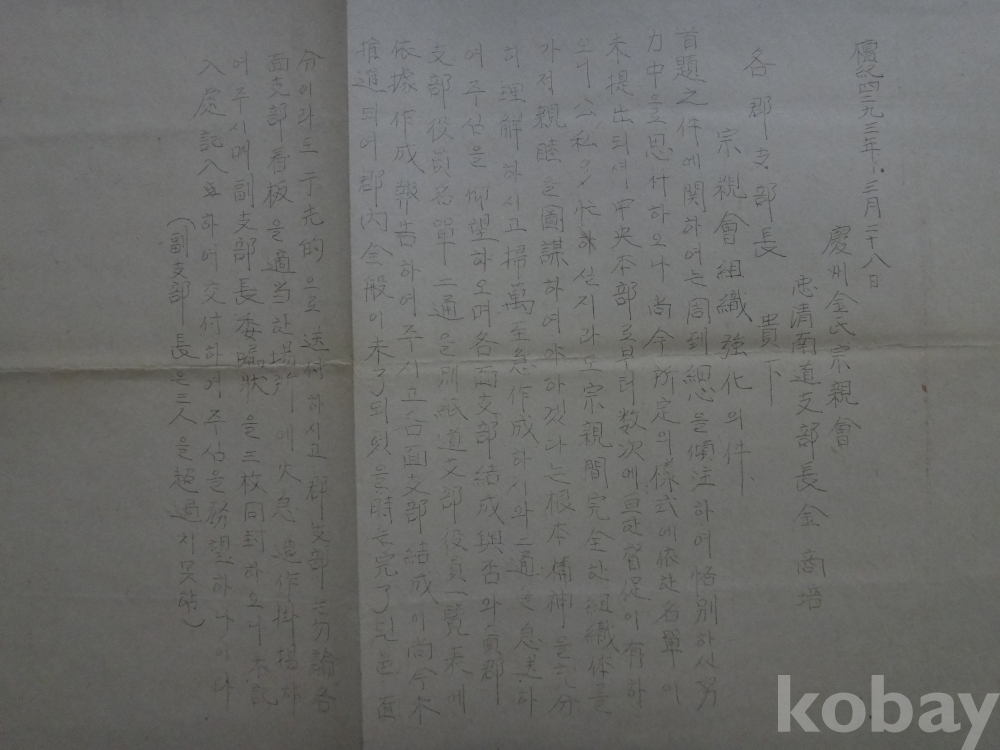 檀紀四二九三年 三月二十八日
慶州金氏宗親會
忠淸南道支部長 金商培
各郡支部長 貴下
宗親會組織強化의件
首題之件에関하여는周到細心을傾注하여恪別하신努
力中으로思什하오나尚今所定의樣式에依한名單이
未提出되여中央本部로부터数次에亘한督促이有하
오니公私多忙하실지라도宗親間完全한組織体를
가저親睦을圖謀하여야하겠다는根本精神을充分
히理解하시고掃萬至急作成하기와二通을急送하
여주심을仰望하오며各面支部結成與否와貴郡
支部役員名單二通을別紙道支部役員一覽表에
依據作成報告하여주시고各面支部結成이尚今未
推進되여郡內全般이未了되엿을時는完了된面
分이라도于先的으로送付하시고郡支部는勿論各
面支部看板을適当한場所에火急造作掛揭하
여주시며副支部長委囑状을三枚同封하오니未記
入處記入하여交付하여주심을務望하나이다
(副支部長은三人을超過치못함)
kobay